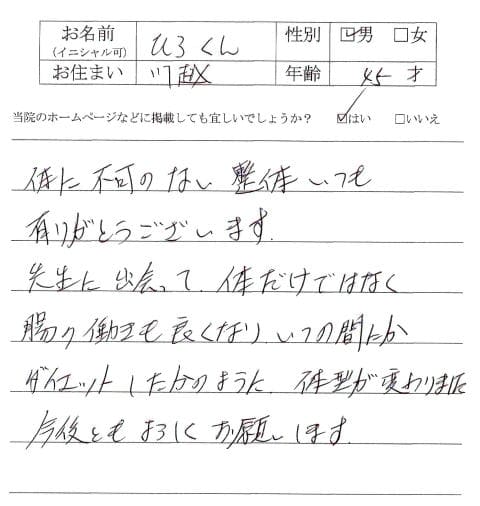 お名前 (イニシャル可) ひろくん 性別 ☑男 □女
お住まい 川越 年齢 45 才
当院のホームページなどに掲載しても宜しいでしょうか? ☑はい □いいえ
体に不可のない整体いつも
有りがとうございます.
先生に出会って、体だけではなく
腸の働きも良くなり、いつの間にか
ダイエットしたかのように、体型が変わりました
今後ともよろしくお願いします.